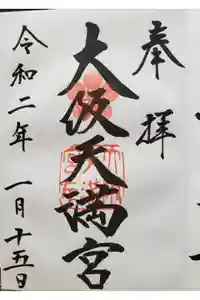 奉拝
大阪天満宮
令和二年 一月十五日